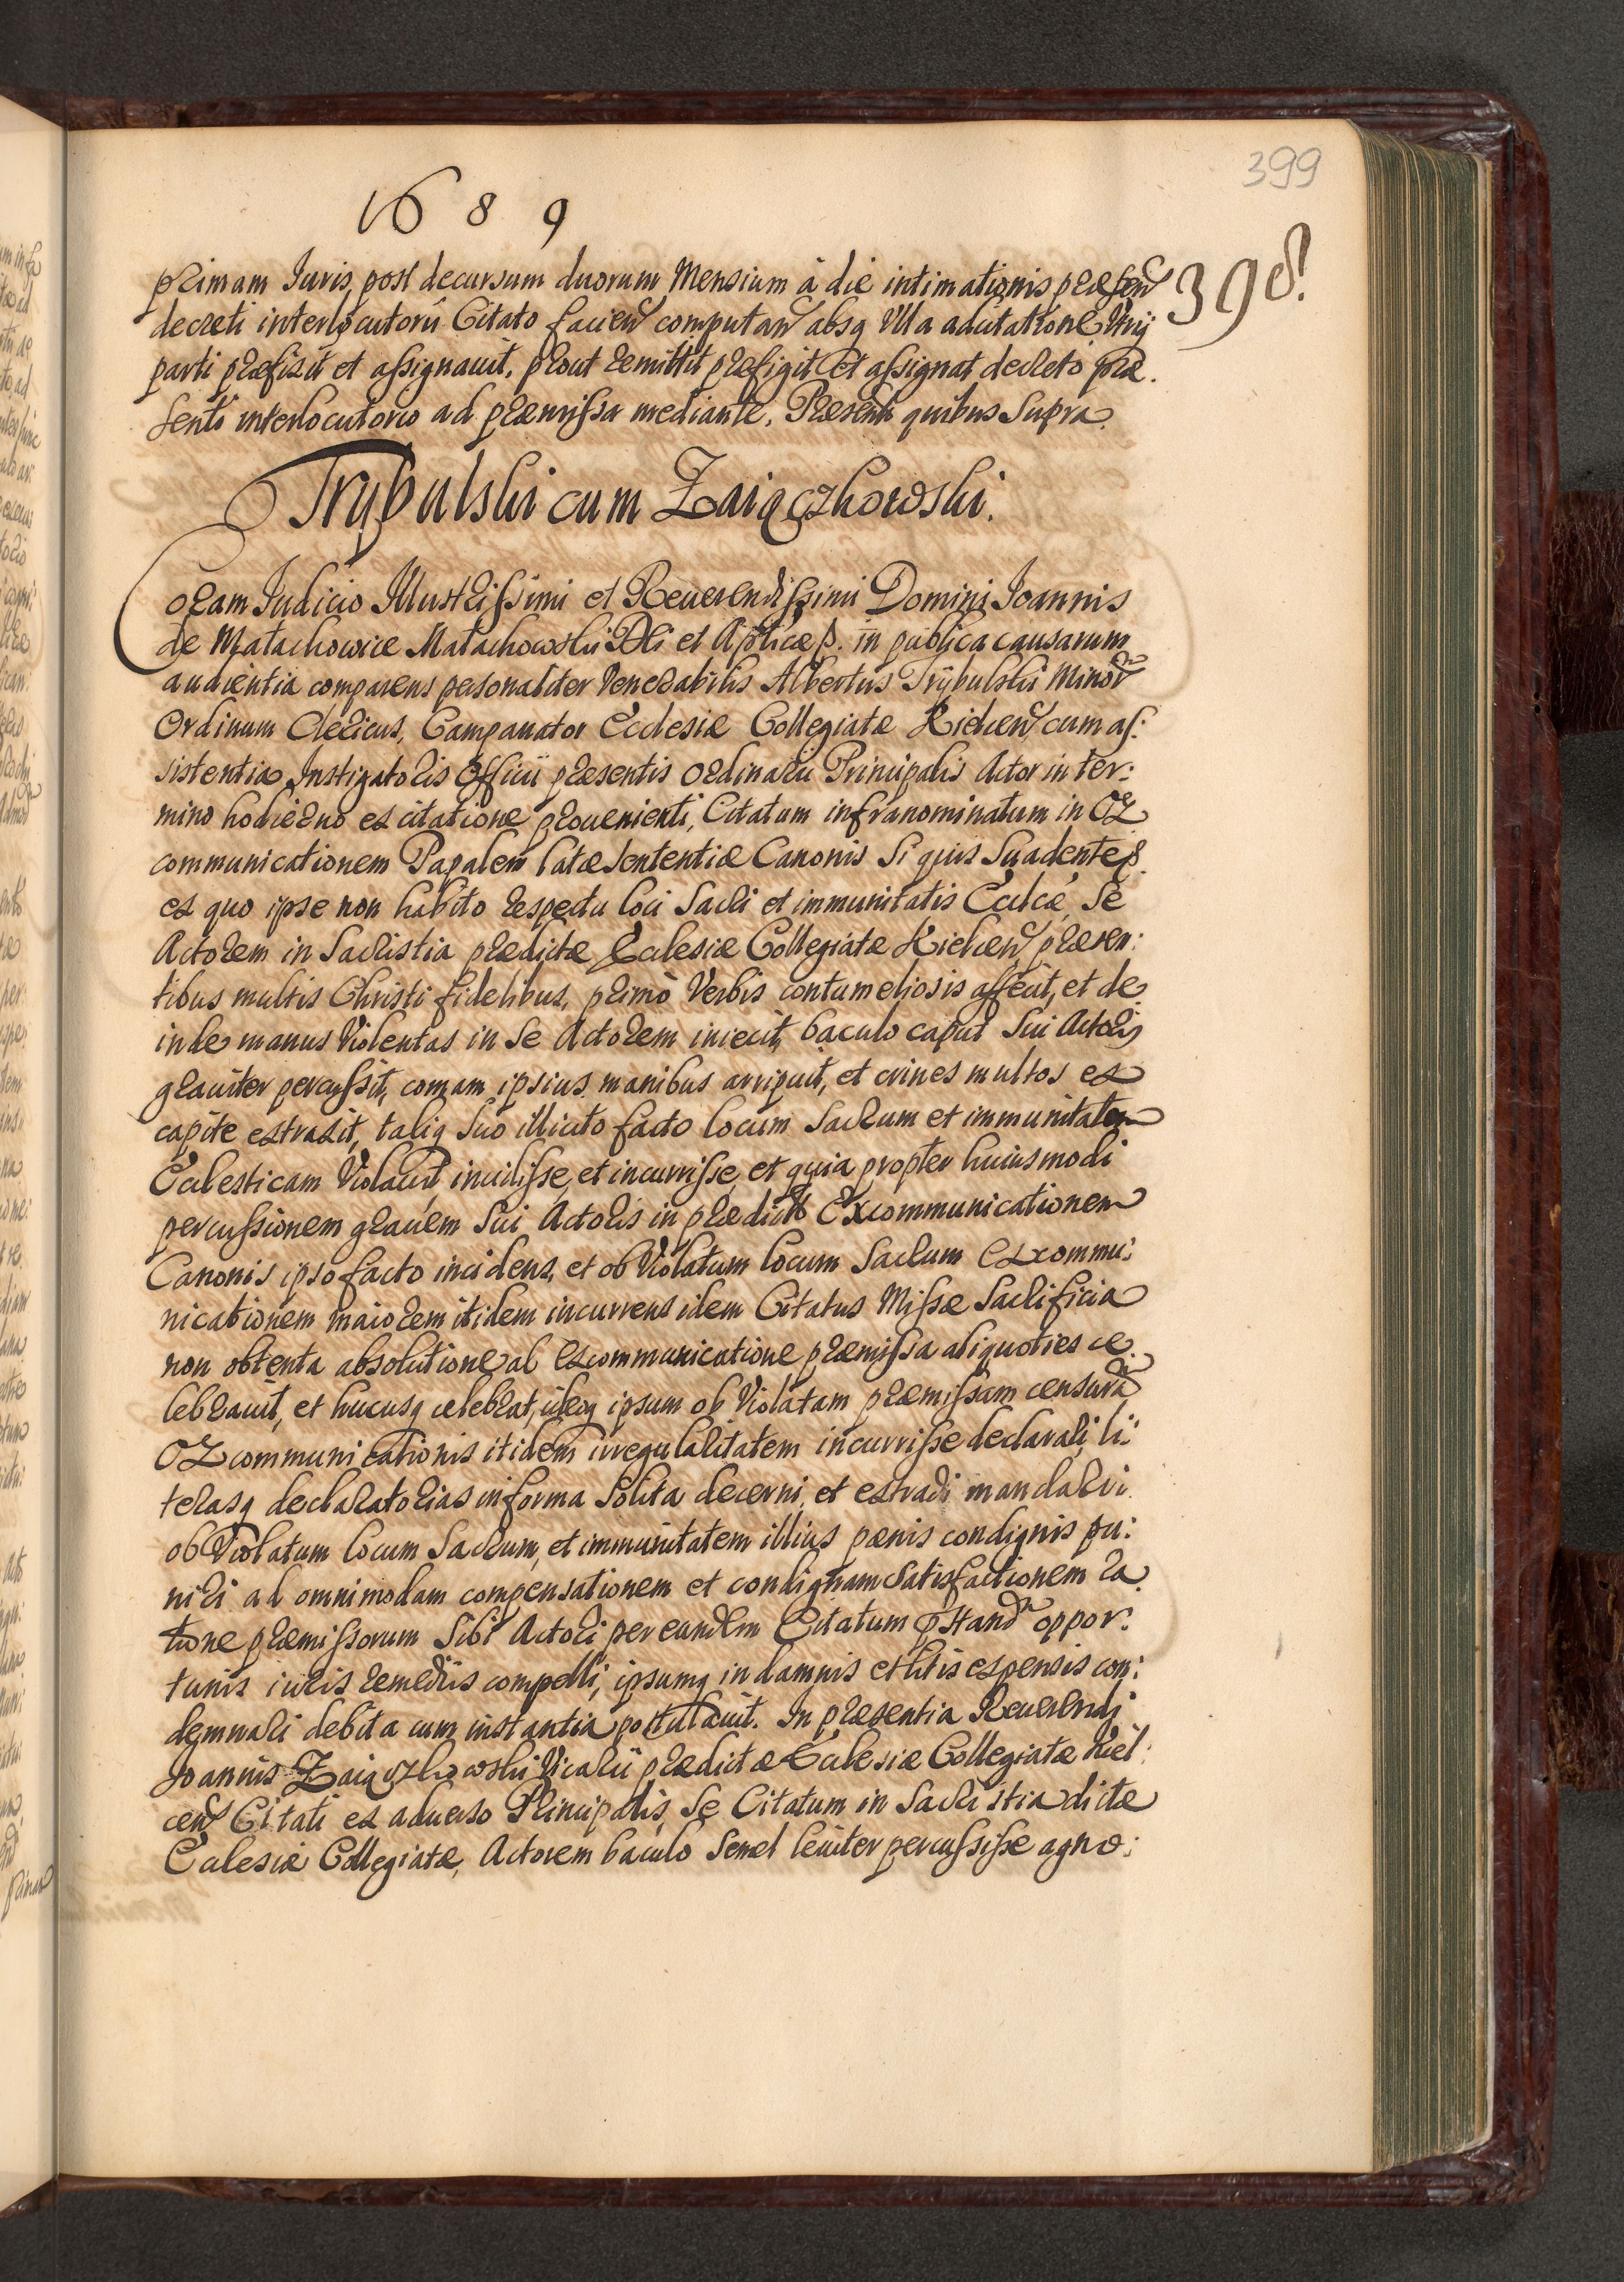 399
1689
398.
primam Iuris, post decursum duorum Mensium à die intimationis præsen
decreti interlocutorii Citato facien computan absq Vlla adcitatione Vtriq
parti præfixit et assignauit, prout remittit præfigit et assignat decreto præ.
senti interlocutorio ad præmissa mediante. Præsentib quibus Supra.
Trybulski cum Zaiączkowski.
Coram Iudicio Illustrissimi et Reuerendissimi Domini Ioannis
de Małachowice Małachowski Dei et Apticæ S. in publica causarum
audientia comparens personaliter Venerabilis Albertus Trÿbulski Minor
Ordinum Clericus, Campanator Ecclesiæ Collegiatæ Kielcen cum as:
sistentia Instigatoris Officii præsentis Ordinarii Principalis Actor in ter:
mino hodierno ex citatione prouenienti, Citatum infranominatum in Ex
communicationem Papalem latæ sententiæ Canonis Si quis Suadente &.
ex quo ipse non habito respectu loci Sacri et immunitatis Ecclcæ, Se
Actorem in Sacristia prædictæ Ecclesiæ Collegiatæ Kielcen, præsen:
tibus multis Christi fidelibus, primò Verbis contumeliosis affecit, et de
inde manus Violentas in Se Actorem iniecit, baculo caput Sui Actoris
grauiter percussit, comam ipsius manibus arripuit, et crines multos ex
capite extraxit, taliq Suo illicito facto locum Sacrum et immunitatem
Ecclesticam Violauit, incidisse, et incurrisse, et quia propter huiusmodi
percussionem grauem Sui Actoris in prædict Excommunicationem
Canonis ipso facto incidens, et ob Violatum locum Sacrum Excommu:
nicationem maiorem itidem incurrens idem Citatus Missæ Sacrificia
non obtenta absolutione ab Excommunicatione præmissa aliquoties ce
lebrauit, et hucusq celebrat, ideoq ipsum ob Violatam præmissam censura
Excommunicationis itidem irregularitatem incurrisse declarari, lit:
terasq declaratorias in forma Solita decerni, et extradi mandari
ob Violatum locum Sacrum, et immunitatem illius pænis condignis pu:
niri ad omnimodam compensationem et condignam Satisfactionem ra
tione præmissorum Sibi Actori per eundem Citatum pstand oppor:
tunis iuris remediis compelli, ipsumq in damnis et litis expensis con:
demnari debita cum instantia postulauit. In præsentia Reuerendi
Ioannis Zaiączkowski Vicarii prædictæ Ecclesiæ Collegiatæ Kiel:
cen Citati ex aduerso Principalis, Se Citatum in Sacristia dictæ
Ecclesiæ Collegiatæ, Actorem baculo Semel leuiter percussisse agno: